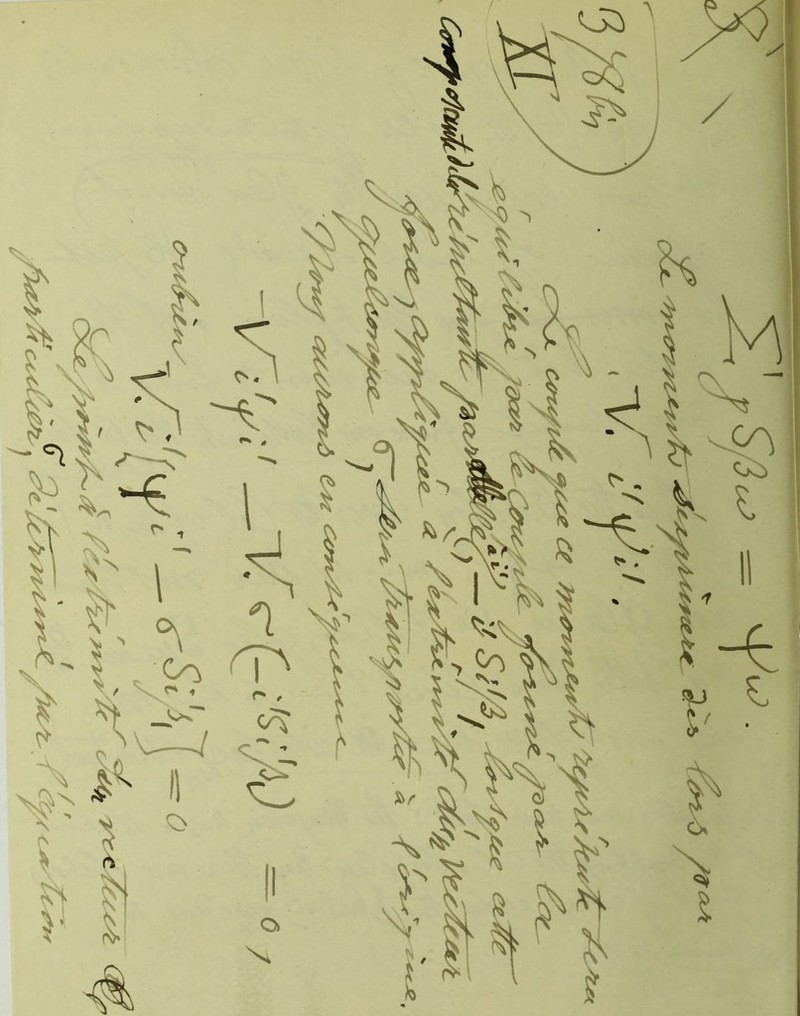 378 bis
XI
Σ' γ Sβω = ψω.
Le moment s'exprimera dès lors par
V. i'ψi'.
Le couple que ce moment représente sera
équilibré par le couple formé par la
composante de la résultante parallèle à i', – i'Si'β, lorsque cette
force, appliquée à l'extrémité d'un vecteur
quelconque σ, sera transportée à l'origine.
Nous aurons en conséquence
– V i'ψi' – V. σ(–i'Si'β₁) = 0,
ou bien
V. i'{ψi' – σ Si'β₁} = 0
Le point à l'extrémité d'un vecteur
particulier, σ déterminé par l'équation